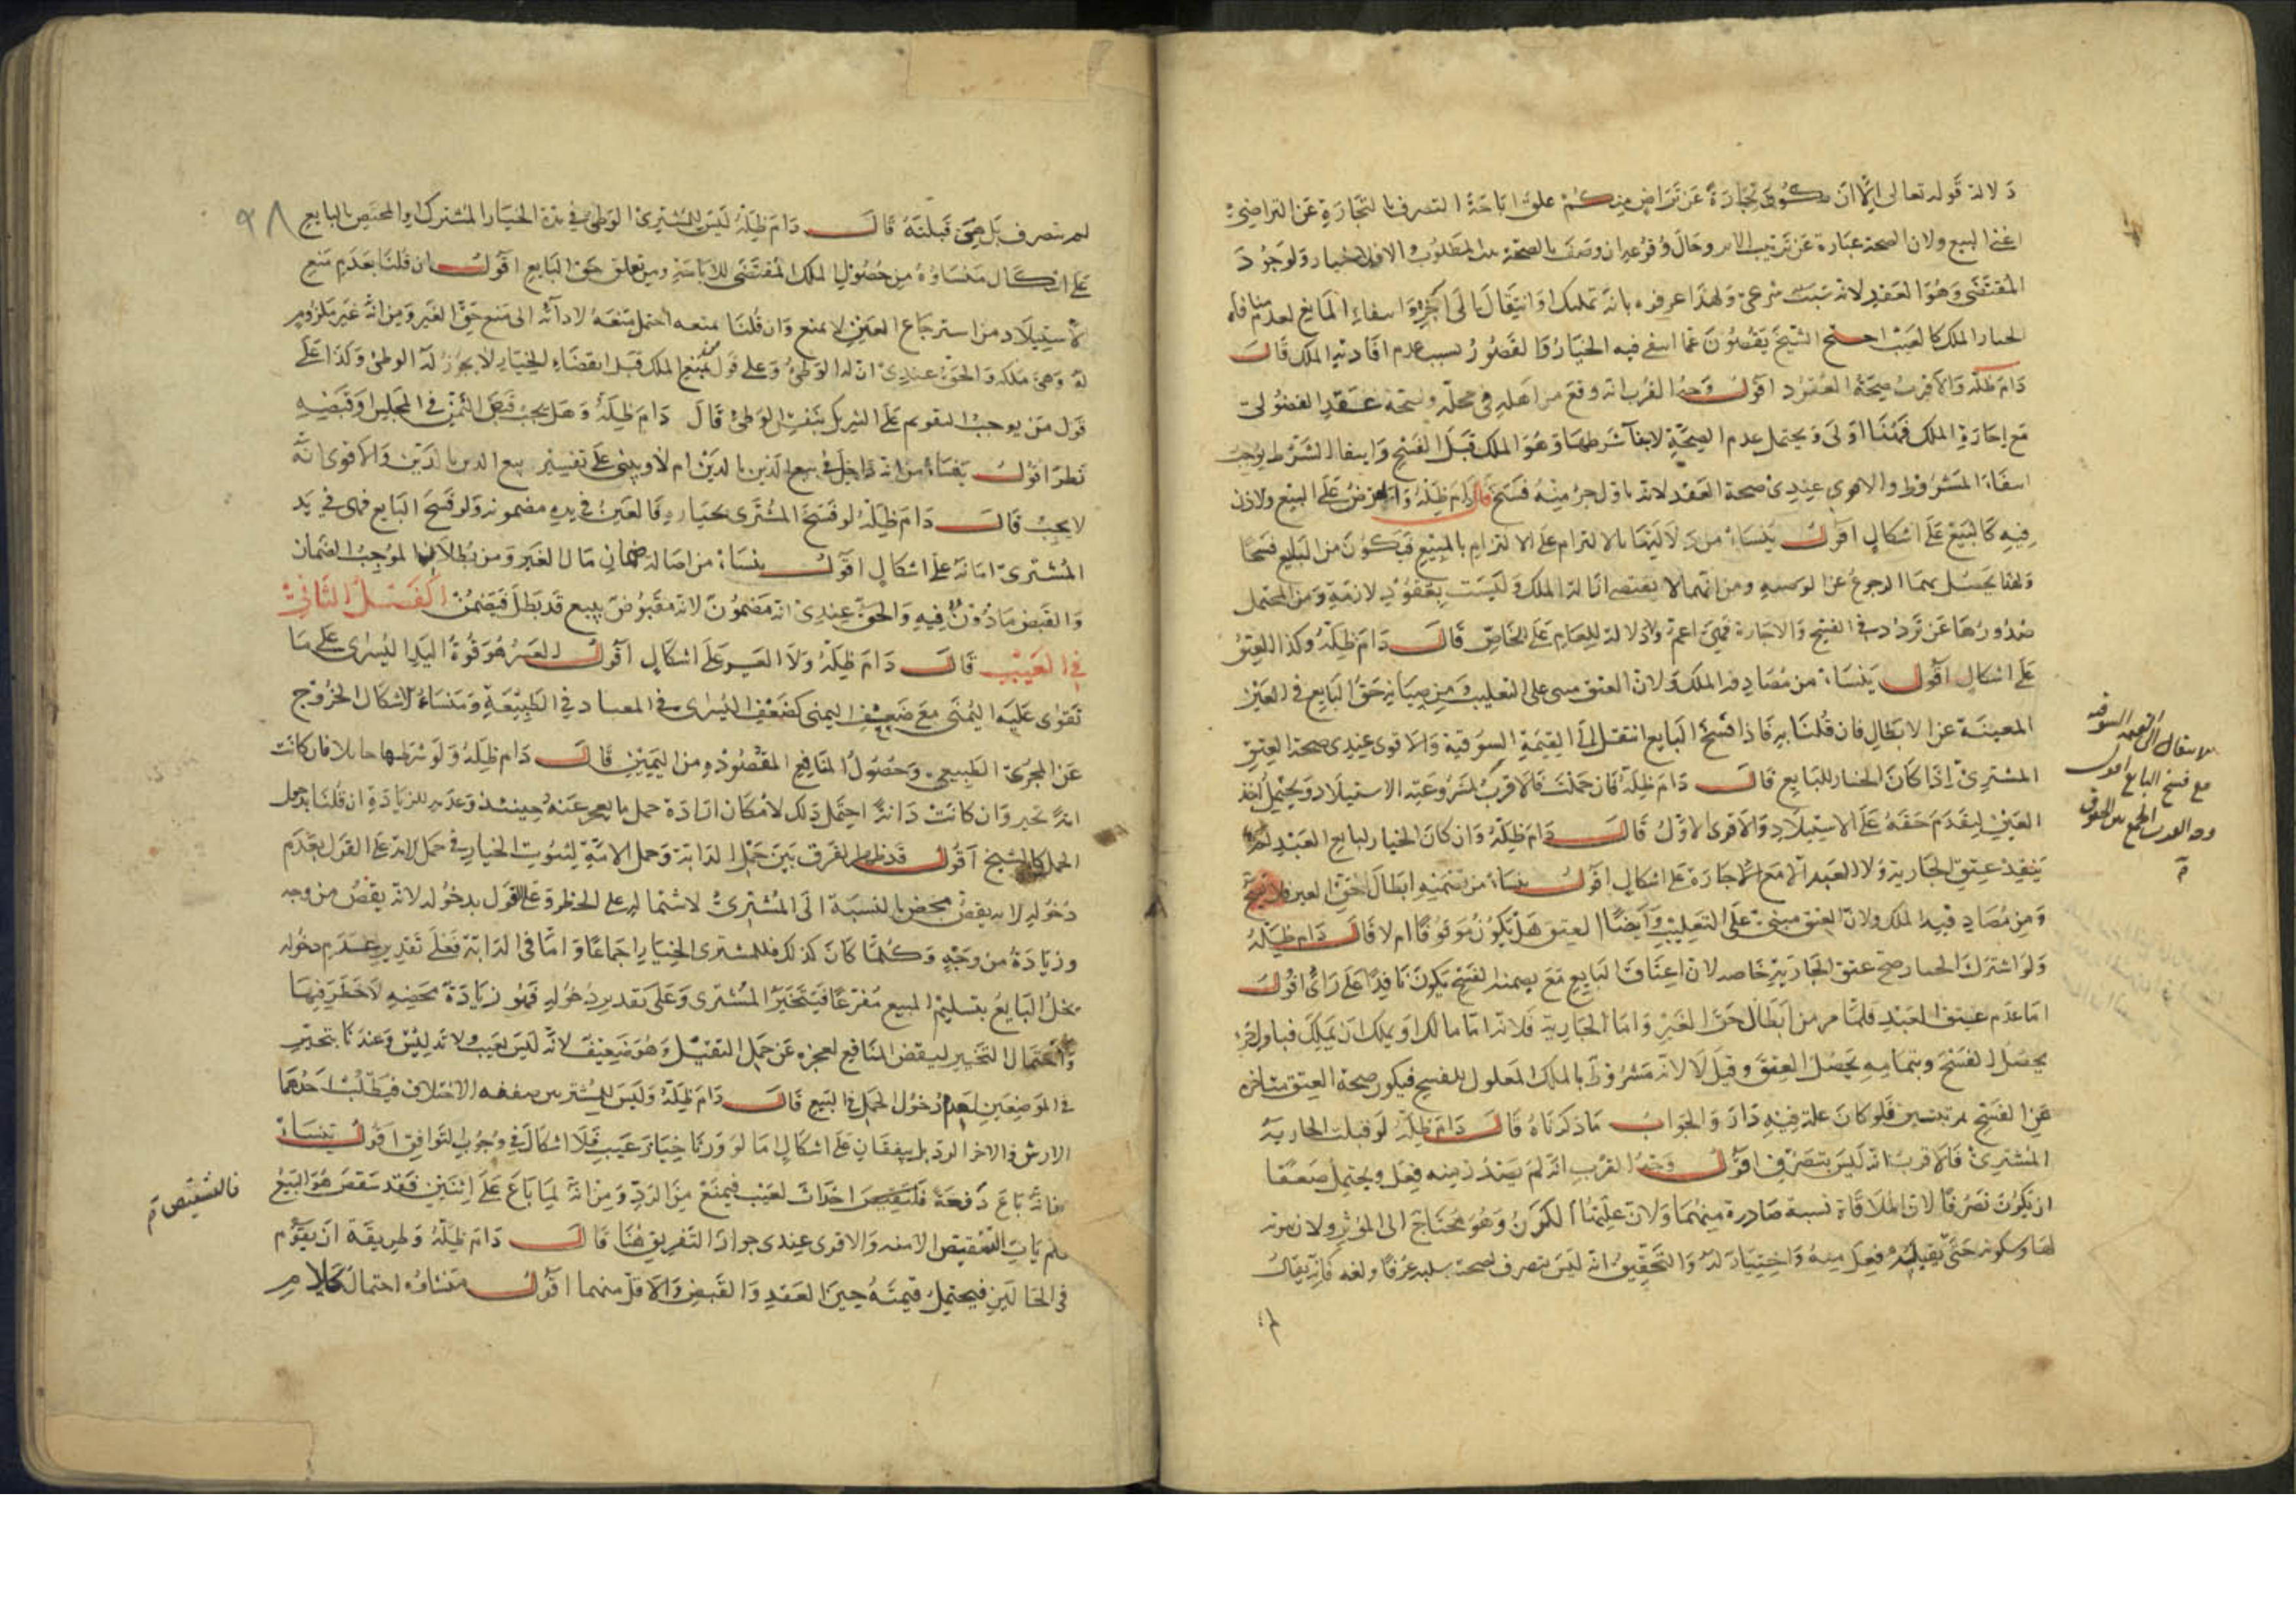 دلالة قوله تعالى الا ان تكون تجارة عن تراض منكم على اباحة التصرف بالتجارة عن التراضي
اعني البيع ولان الصحة عبارة عن ترتيب الاثر وحال وقوعه ان وصف بالصحة ثبت المطلوب والا فلا خيار ولوجود
المقتضى وهو العقد لانه سبب شرعي ولهذا عرفوه بانه تمليك او انتقال الى اخره وانتفاء المانع لعدم منافاة
الخيار الملك كالعيب احتج الشيخ بقصور عما انتفى فيه الخيار والقصور بسبب عدم افادته الملك قال
دام ظله والاقرب صحة العقود اقول وجه القرب انه وقع من اهله في محله ولصحة عقد الفضولي
مع اجازة الملك فهنا اولى ويحتمل عدم الصحة لانتفاء شرطها وهو الملك قبل الفسخ وانتفاء الشرط يوجب
انتفاء المشروط والاقوى عندي صحة العقد لانه باول جزء منه فسخ قال دام ظله والعرض على البيع والاذن
فيه كالبيع على اشكال اقول ينشاء من دلالتها بالالتزام على الالتزام بالمبيع فيكون من البايع فسخا
ولهذا يحصل بهما الرجوع عن الوصية ومن انهما لا يقتضي ازالة الملك وليست بعقود لازمة ومن المحتمل
صدورها عن تردد في الفسخ والاجازة فهي اعم ولا دلالة للعام على الخاص قال دام ظله وكذا العتق
على اشكال اقول ينشاء من مصادفة الملك ولان العتق مبني على التغليب ومن صيانة حق البايع في العين
المعينة عن الابطال فان قلنا به فاذا فسخ البايع انتقل الى القيمة السوقية والاقوى عندي صحة العتق
المشتري اذا كان الخيار للبايع قال دام ظله فان حملت فالاقرب المشروعية الاستيلاد ويحتمل اخذ
العين لتقدم حقه على الاستيلاد والاقوى الاول قال دام ظله وان كان الخيار لبايع العبد لم
ينفذ عتق الجارية ولا العبد الا مع الاجازة على اشكال اقول ينشاء من تضمنه ابطال حق الغير فلا يصح
ومن مصادفته الملك ولان العتق مبني على التغليب وايضا العتق هل يكون موقوفا ام لا قال دام ظله
ولو اشترك الخيار صح عتق الجارية خاصة لان اعتاق البايع مع تضمنه الفسخ يكون نافذا على راي اقول
اما عدم عتق العبد فلما مر من ابطال حق الغير واما الجارية فلانه اما مالك او يملك ان يملك فباول جزء
يحصل الفسخ وبتمامه يحصل العتق وقيل لا لانه مشروط بالملك المعلول للفسخ فيكون صحة العتق متاخرة
عن الفسخ بمرتبتين فلو كان علة فيه دار والجواب ما ذكرناه قال دام ظله لو قبلت الجارية
المشتري فالاقرب انه ليس بتصرف اقول وجه القرب انه لم يصدر منه فعل ويحتمل ضعيفا
ان يكون تصرفا لان الملاقاة نسبة صادرة منهما ولان علتها الكون وهو محتاج الى المؤثر ولان
لها وسكونه حتى تقبله فعل منه واختيار له والتحقيق انه ليس بتصرف لصحة سلبه عرفا ولغة فانه يقال
لم
الانتقال الى القيمة السوقية
مع فسخ البايع اقول
وجه القرب الجمع بين الحقوق
لم يتصرف بل هي قبلته قال دام ظله ليس للمشتري الوطي في مدة الخيار المشترك او المختص بالبايع ٩٨
على اشكال منشاؤه من حصول الملك المقتضي للاباحة ومن تعلق حق البايع اقول ان قلنا بعدم منع
الاستيلاد من استرجاع العين لا يمنع وان قلنا بمنعه احتمل منعه لادائه الى منع حق الغير ومن انه غير ملزوم
له وهي ملكه والحق عندي ان له الوطي وعلى قول يمنع الملك قبل انقضاء الخيار لا يجوز له الوطي وكذا على
قول من يوجب التقويم على الشريك بنفس الوطي قال دام ظله وهل يجب قبض الثمن في المجلس او قبضه
نظر اقول ينشاء من انه داخل في بيع الدين بالدين ام لا ويبنى على تفسير بيع الدين بالدين والاقوى انه
لا يجب قال دام ظله لو فسخ المشتري بخياره فالعين في يده مضمونة ولو فسخ البايع فهي في يد
المشتري امانة على اشكال اقول ينشاء من اصالة ضمان مال الغير ومن بطلان الموجب الضمان
والقبض ماذون فيه والحق عندي انه مضمون لانه مقبوض ببيع قد بطل فيضمن الفصل الثاني
في العيب قال دام ظله ولا العسر على اشكال اقول العسر هو قوة اليد اليسرى على ما
تقوى عليه اليمنى مع ضعف اليمنى كضعف اليسرى في المعتاد في الطبيعة ومنشاء الاشكال الخروج
عن المجرى الطبيعي وحصول المنافع المقصودة من اليمين قال دام ظله ولو شرطها حايلا فان كانت
امة تخير وان كانت دابة احتمل ذلك لامكان ارادة حمل ما يعجز عنه حينئذ وعدمه للزيادة ان قلنا بدخول
الحمل كالشيخ اقول قد ظهر الفرق بين حمل الدابة وحمل الامة لثبوت الخيار في حمل الامة على القول بعدم
دخوله لانه نقص محض بالنسبة الى المشتري لاشتماله على الخطر وعلى القول بدخوله لانه نقص من وجه
وزيادة من وجه وكلما كان كذلك فللمشتري الخيار اجماعا واما في الدابة فعلى تقدير عدم دخوله
يخل البايع بتسليم المبيع مفرغا فيتخير المشتري وعلى تقدير دخوله فهو زيادة محضة لا خطر فيها
واحتمال التخيير لينقص المنافع لعجزه عن حمل الثقيل وهو ضعيف لانه ليس بعيب ولا تدليس وعندنا يتخير
في الموضعين لعدم دخول الحمل في البيع قال دام ظله وليس للمشتريين صفقة الاختلاف فيطلب احدهما
الارش والاخر الرد بل يتفقان على اشكال اما لو ورثا خيار عيب فلا اشكال في وجوب التوافق اقول ينشاء
من انه باع دفعة فلتبعيض احداث لعيب فيمنع من الرد ومن انه لما باع على اثنين فقد
فلم يات التشقيص الا منه والاقوى عندي جواز التفريق هنا قال دام ظله وطريقة ان يقوم
في الحالين فيحتمل قيمته حين العقد والقبض والاقل منهما اقول منشاؤه احتمال كلام
فالتشقيص